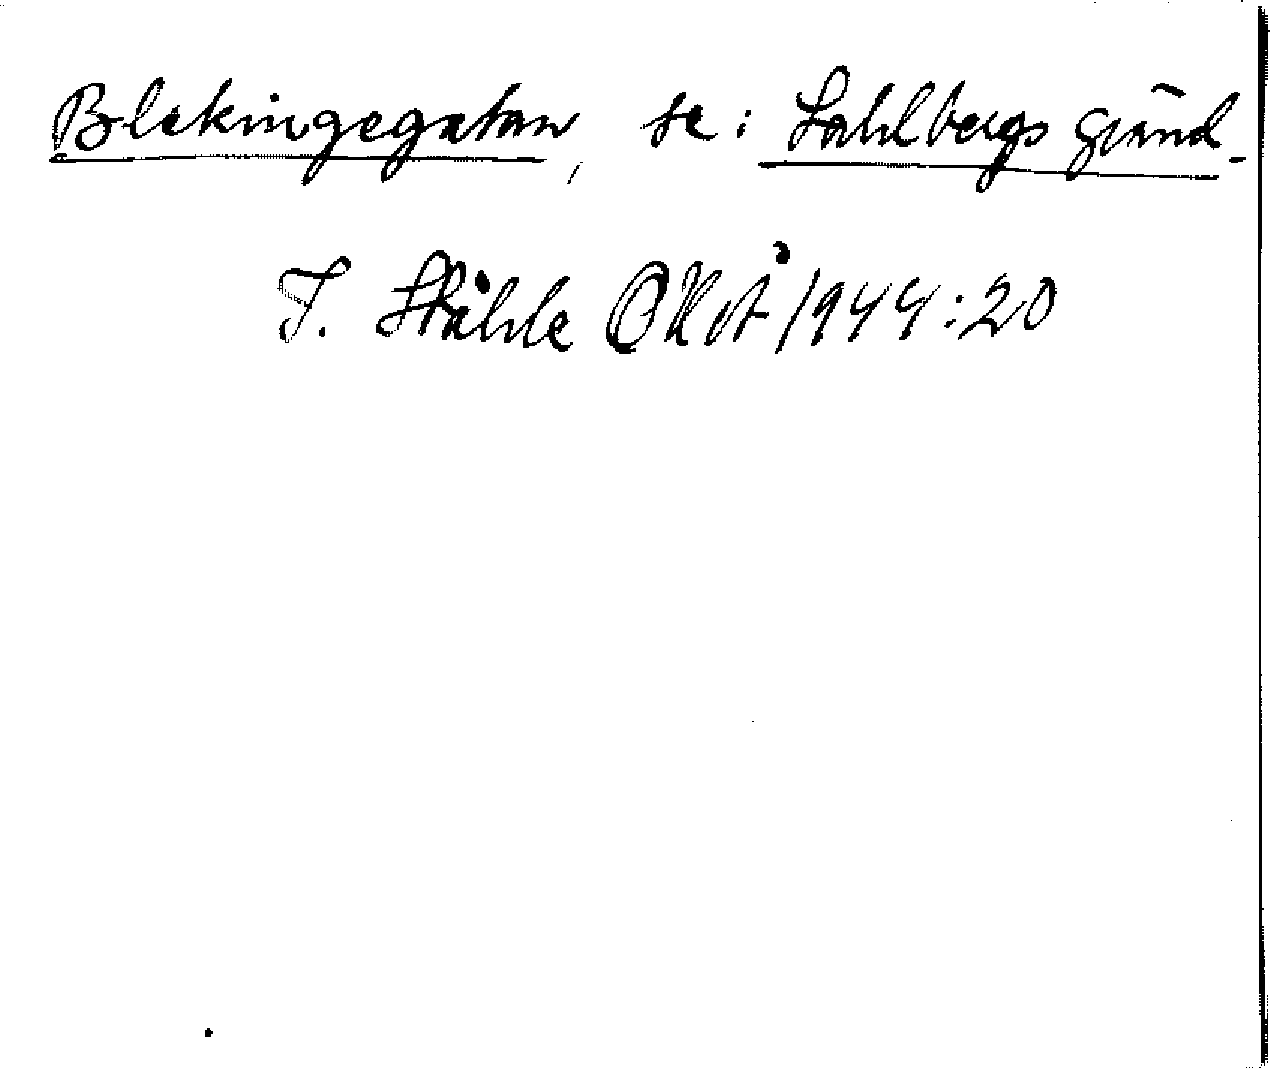 Blekingegatan, se: Sahlbergs gränd.
T. Ståhle OKnÅ 1944:20